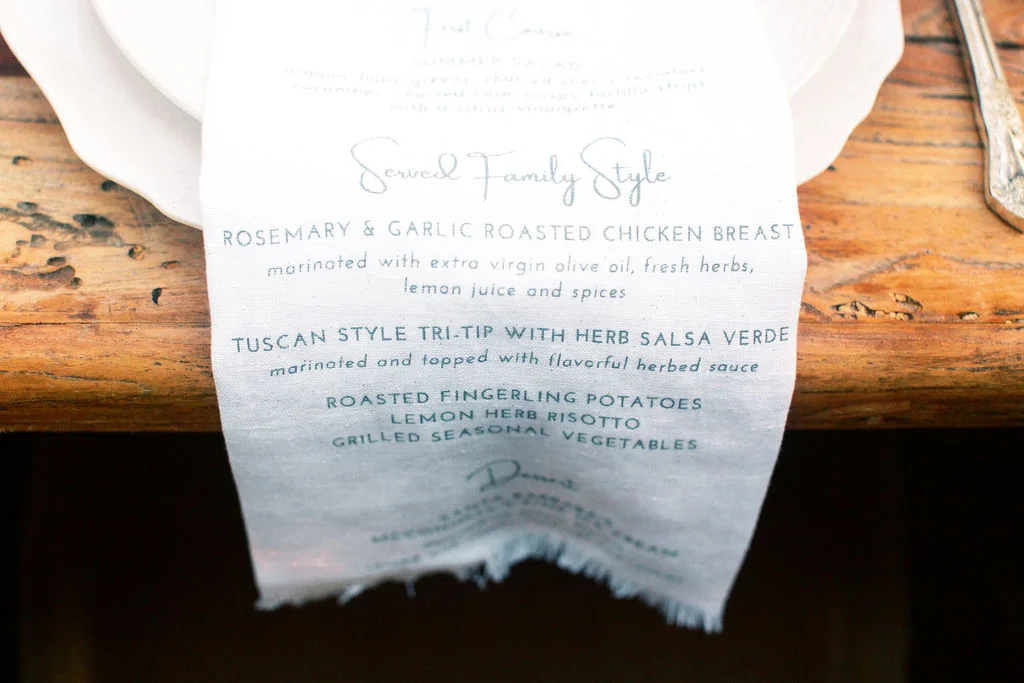 First Course
SUMMER SALAD
organic baby greens, charred sweet tomatoes
cucumber, charred corn, crispy tortilla strips
with a citrus vinaigrette
Served Family Style
ROSEMARY & GARLIC ROASTED CHICKEN BREAST
marinated with extra virgin olive oil, fresh herbs,
lemon juice and spices
TUSCAN STYLE TRI-TIP WITH HERB SALSA VERDE
marinated and topped with flavorful herbed sauce
ROASTED FINGERLING POTATOES
LEMON HERB RISOTTO
GRILLED SEASONAL VEGETABLES
Dessert
CREAM